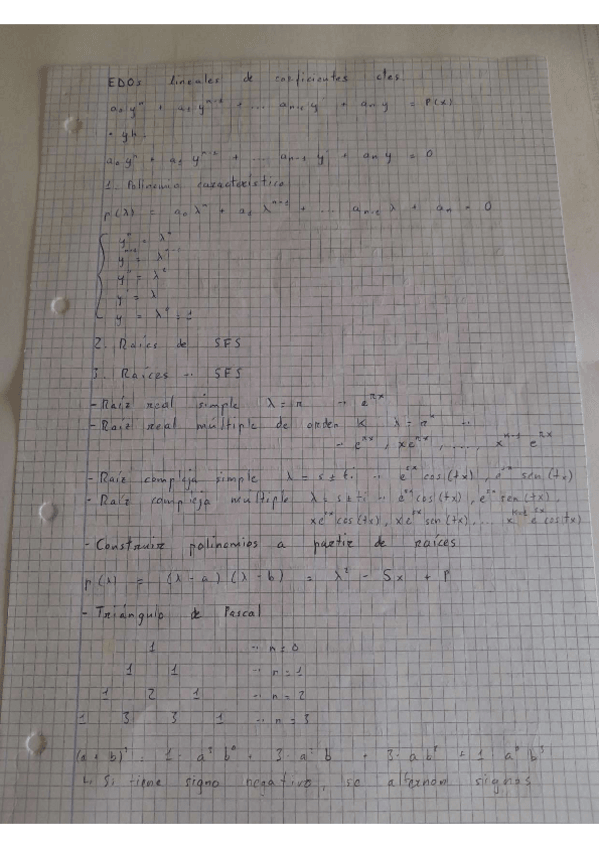 EDOs lineales de coeficientes ctes
a₀ yⁿ + a₁ yⁿ⁻¹ + ... aₙ₋₁ y' + aₙ y = P(x)
• yh.
a₀ yⁿ + a₁ yⁿ⁻¹ + ... aₙ₋₁ y' + aₙ y = 0
1. Polinomio característico
p(λ) = a₀ λⁿ + a₁ λⁿ⁻¹ + ... aₙ₋₁ λ + aₙ = 0
yⁿ = λⁿ
yⁿ⁻¹ = λⁿ⁻¹
y'' = λ²
y' = λ
y = λ⁰ = 1
2. Raíces de SFS
3. Raíces → SFS
- Raíz real simple λ = r → eʳˣ
- Raíz real múltiple de orden K λ = r →
→ eʳˣ, xeʳˣ, ..., xᴷ⁻¹ eʳˣ
- Raíz compleja simple λ = s ± ti → eˢˣ cos(tx), eˢˣ sen(tx)
- Raíz compleja múltiple λ = s ± ti → eˢˣ cos(tx), eˢˣ sen(tx),
xeˢˣ cos(tx), xeˢˣ sen(tx), ... xᴷ⁻¹ eˢˣ cos(tx)
- Construir polinomios a partir de raíces
p(λ) = (λ - a)(λ - b) = λ² - Sx + P
- Triángulo de Pascal
1 → n = 0
1 1 → n = 1
1 2 1 → n = 2
1 3 3 1 → n = 3
(a + b)³ = 1 · a³ b⁰ + 3 · a² b + 3 · a b² + 1 · a⁰ b³
↳ Si tiene signo negativo, se alternan signos